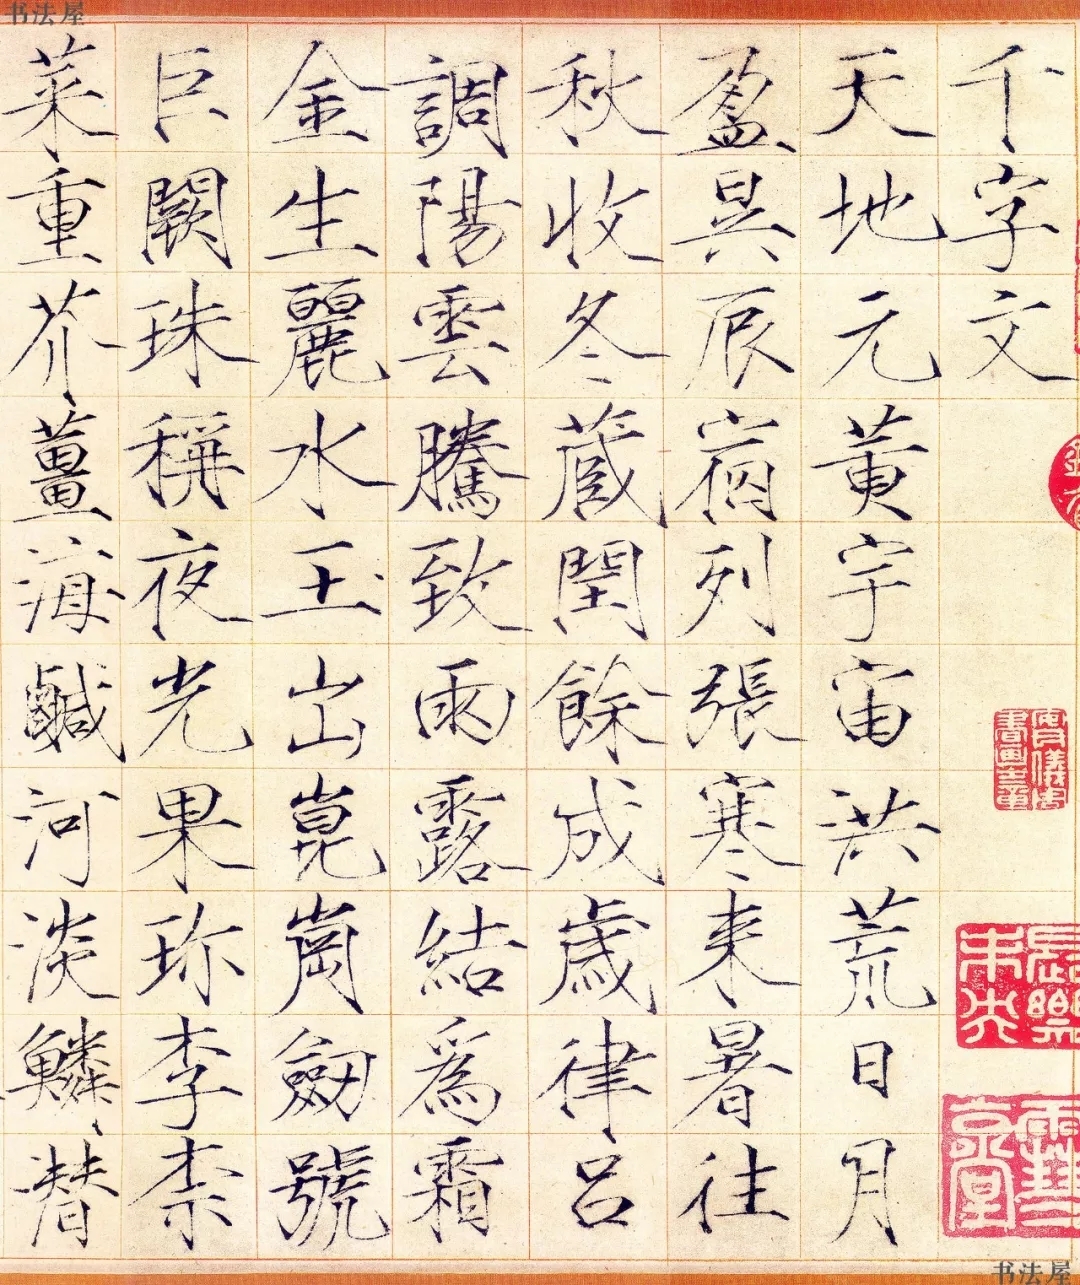 书法屋
千字文
天地元黄宇宙洪荒日月
盈昃辰宿列張寒来暑往
秋收冬蔵閏餘成歳律呂
調陽雲騰致雨露結爲霜
金生麗水玉出崑崗劔號
巨闕珠稱夜光果珎李柰
菜重芥薑海鹹河淡鱗潛
長樂
未央
书法屋